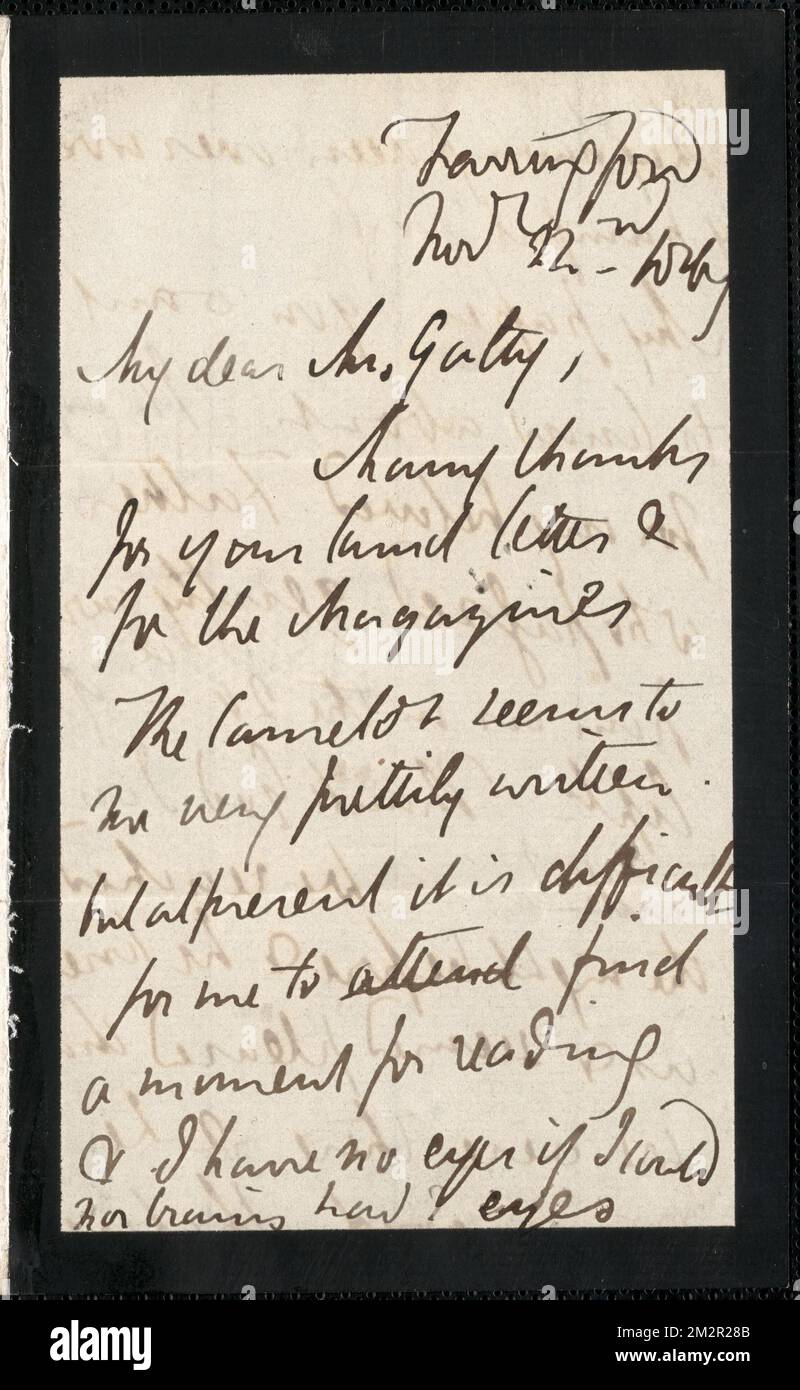 Farringford
Nov 22nd
My dear Mr. Gatty,
Many thanks
for your kind letter &
for the Magazines
The Camelot seems to
me very prettily written.
but at present it is difficult
for me to attend find
a moment for reading
& I have no eyes if I could
nor brains had I eyes
alamy
Image ID: 2M2R28B
www.alamy.com